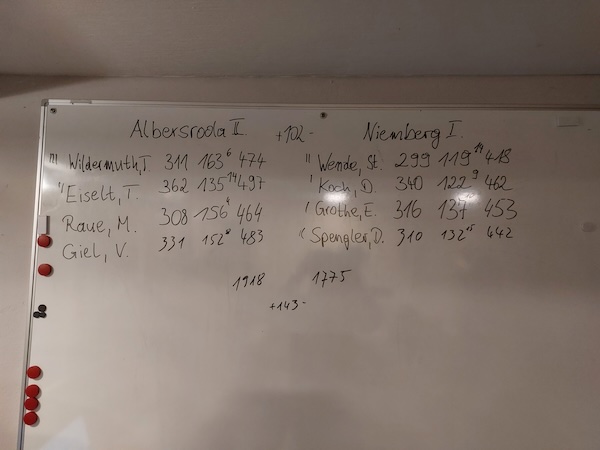 Albersroda II +102- Niemberg I.
"" Wildermuth, T. 311 163 6 474 " Wende, St. 299 119 14 418
" Eiselt, T. 362 135 14 497 ' Koch, D. 340 122 9 462
Raue, M. 308 156 4 464 ' Grothe, E. 316 137 453
Giel, V. 331 152 483 Spengler, D. 310 132 442
1918 1775
+143-